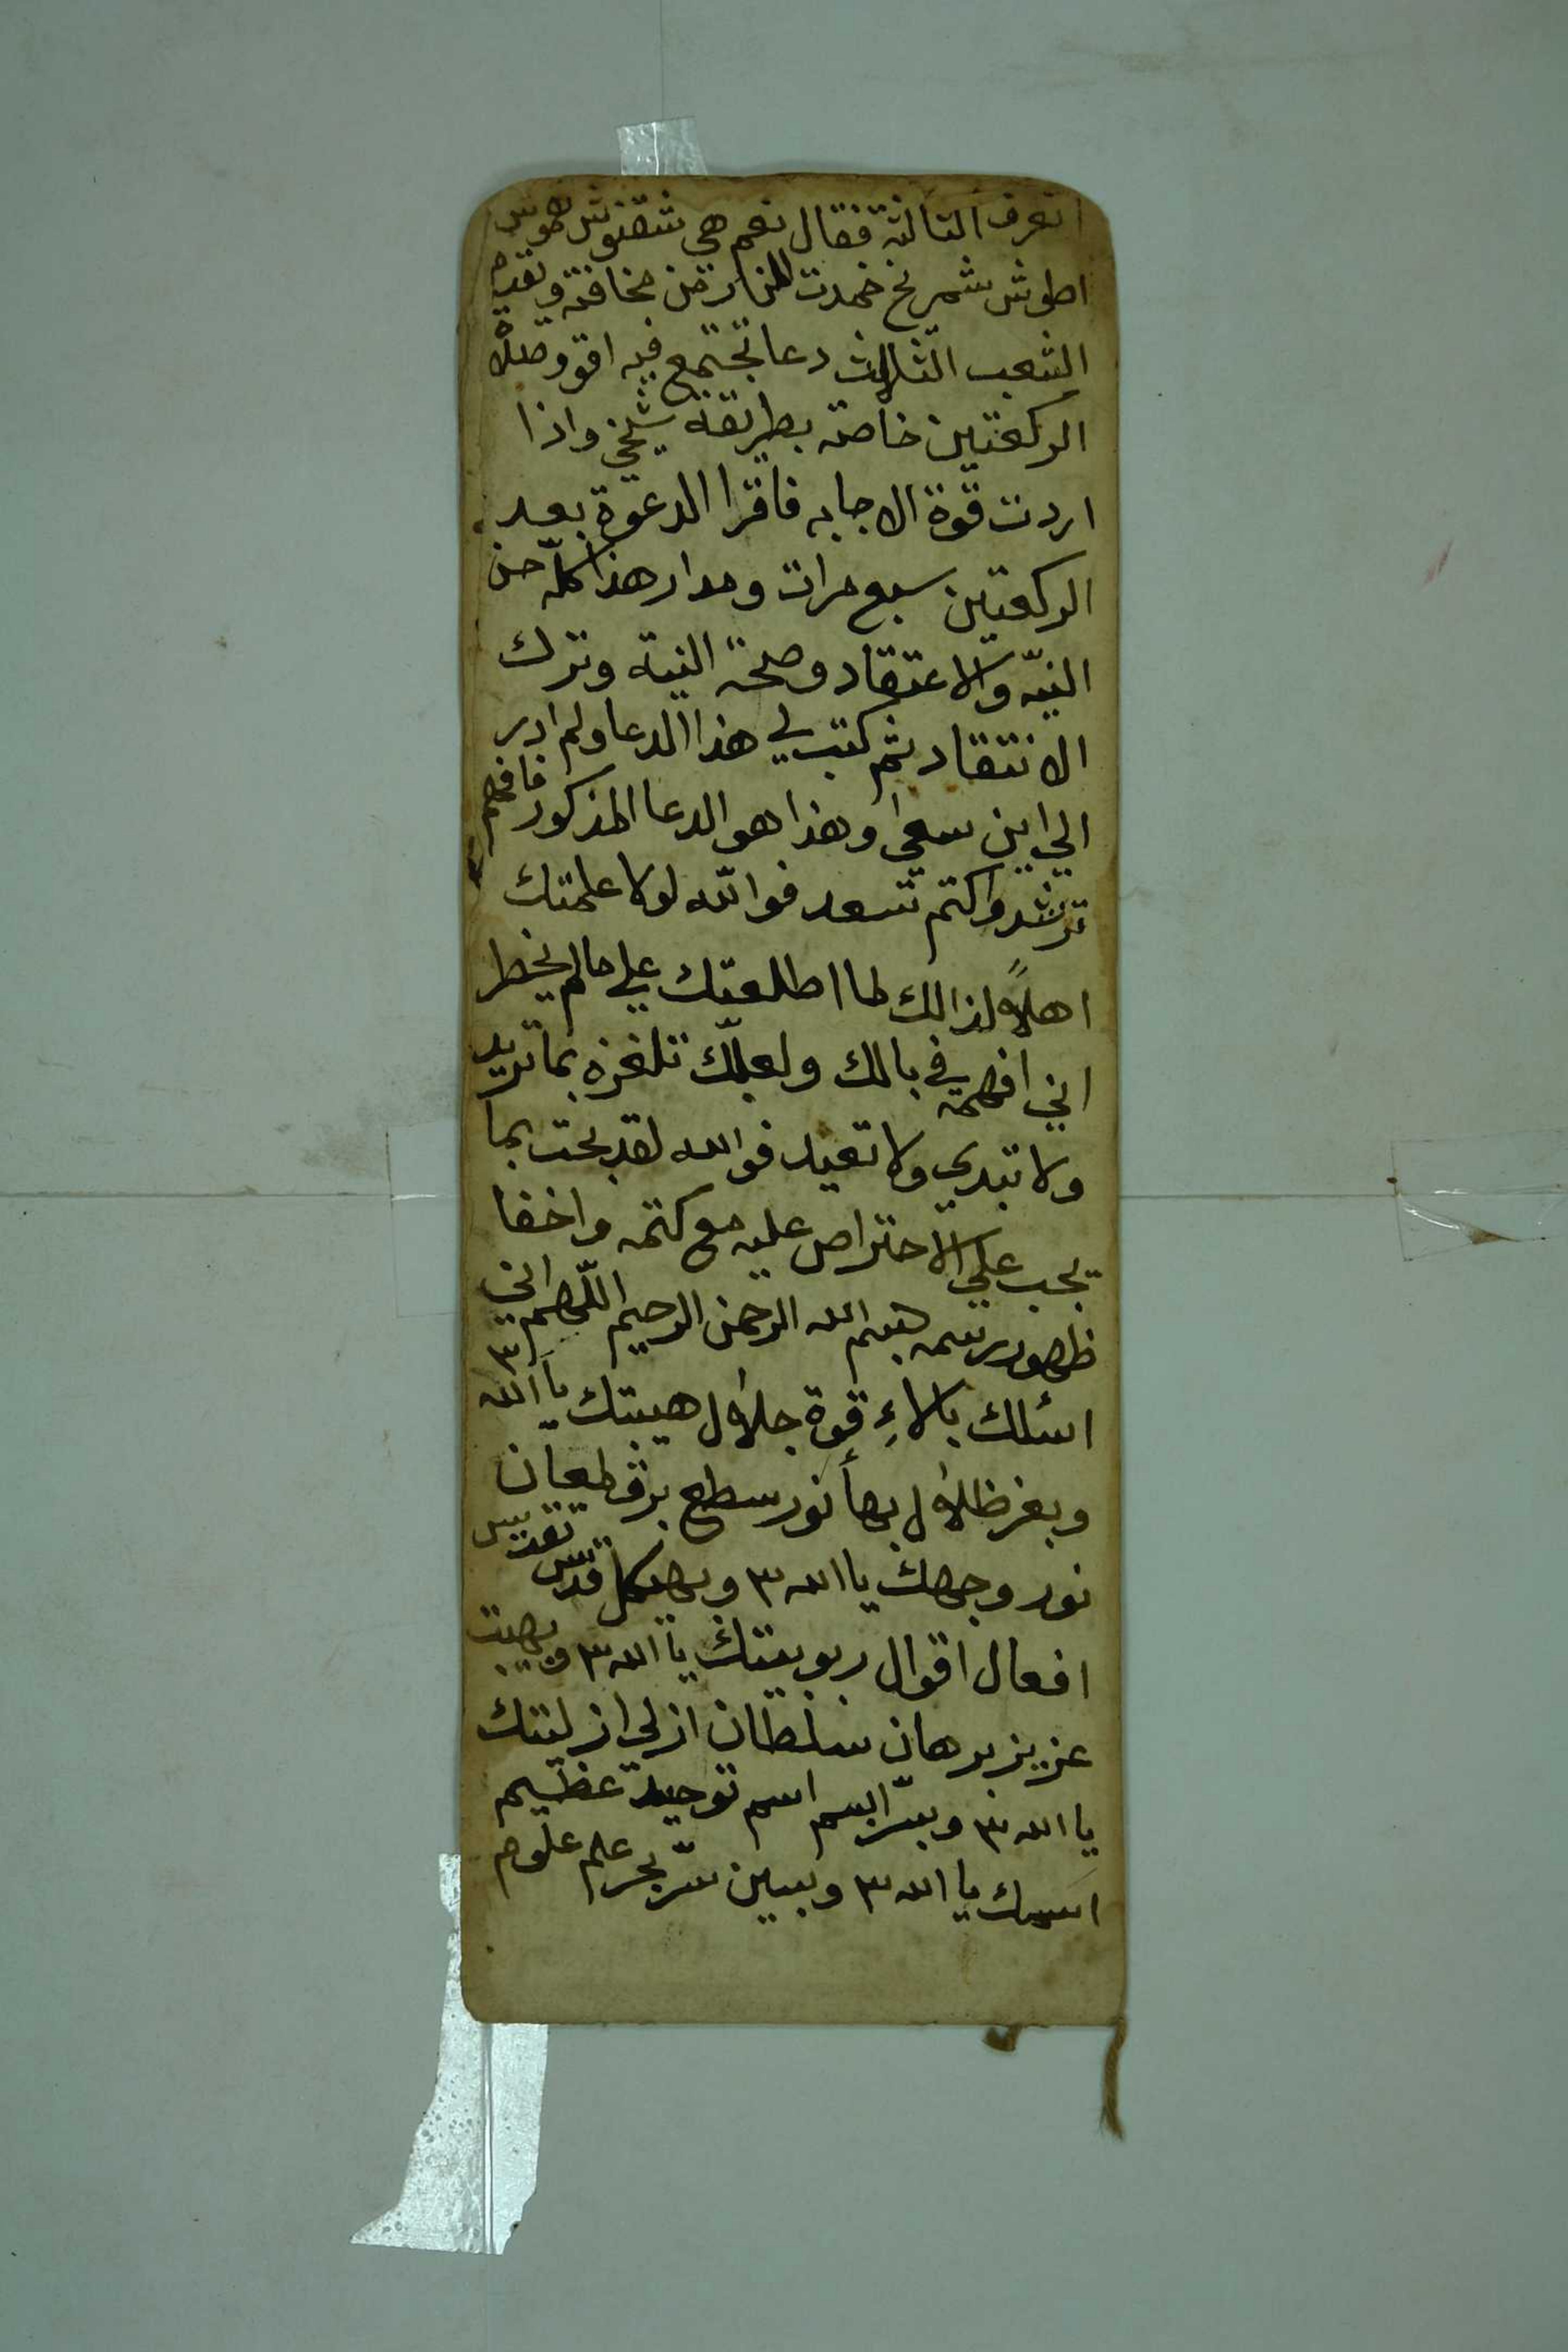 اتعرف الثالثة فقال نعم هي شقنوش طوش
اطوش شمرخ خمدت النار من مخافته وتقدم
الشعب الثلاث دعا تجتمع فيه اقو وصلاة
الركعتين خاصة بطريقة شيخي واذا
اردت قوة الاجابه فاقرا الدعوة بعد
الركعتين سبع مرات ومدار هذا كله حسن
النيّه والاعتقاد وصحة النية وترك
الانتقاد ثم كتب لي هذا الدعا ولم ادر
الي اين سعيا وهذا هو الدعا المذكور فافهم
ترشد واكتم تسعد فوالله لولا علمتك
اهلاً لذالك لما اطلعتك علي مالم يخطر
اني افهمه في بالك ولعلّك تلغزه بما تريد
ولا تبدي ولا تعيد فوالله لقد بحت بما
يجب علي الاحتراص عليه مع كتمه واخفا
ظهور رسمه بسم الله الرحمن الرحيم اللّهم اني
اسئلك بالاءِ قوة جلال هيبتك يا الله ٣
وبعز ظلال بهأ نور سطع برق لمعان
نور وجهك يا الله ٣ وبهيكل قدس تقديس
افعال اقوال ربوبيتك يا الله ٣ وبهيبت
عزيز برهان سلطان ازلي ازليتك
يا الله ٣ وبسّر ابسم اسم توحيد عظيم
اسمك يا الله ٣ وبسين سرّ بحر علم علوم